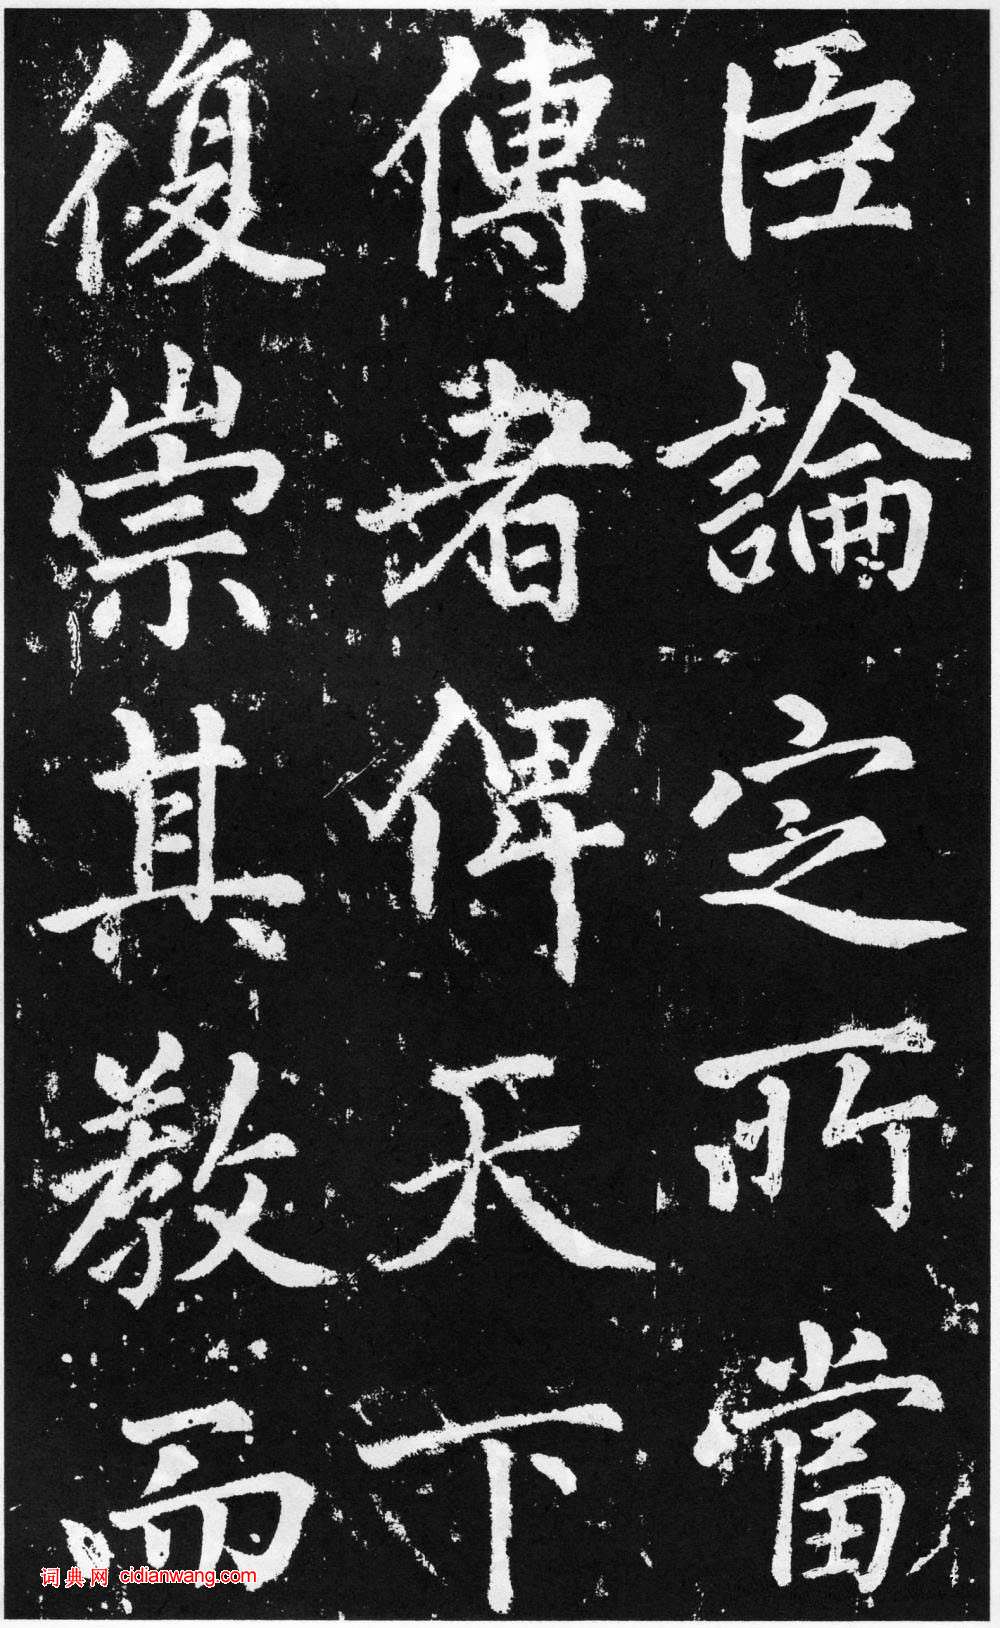 臣論定所當
傳者俾天下
復崇其教而
词典网 cidianwang.com